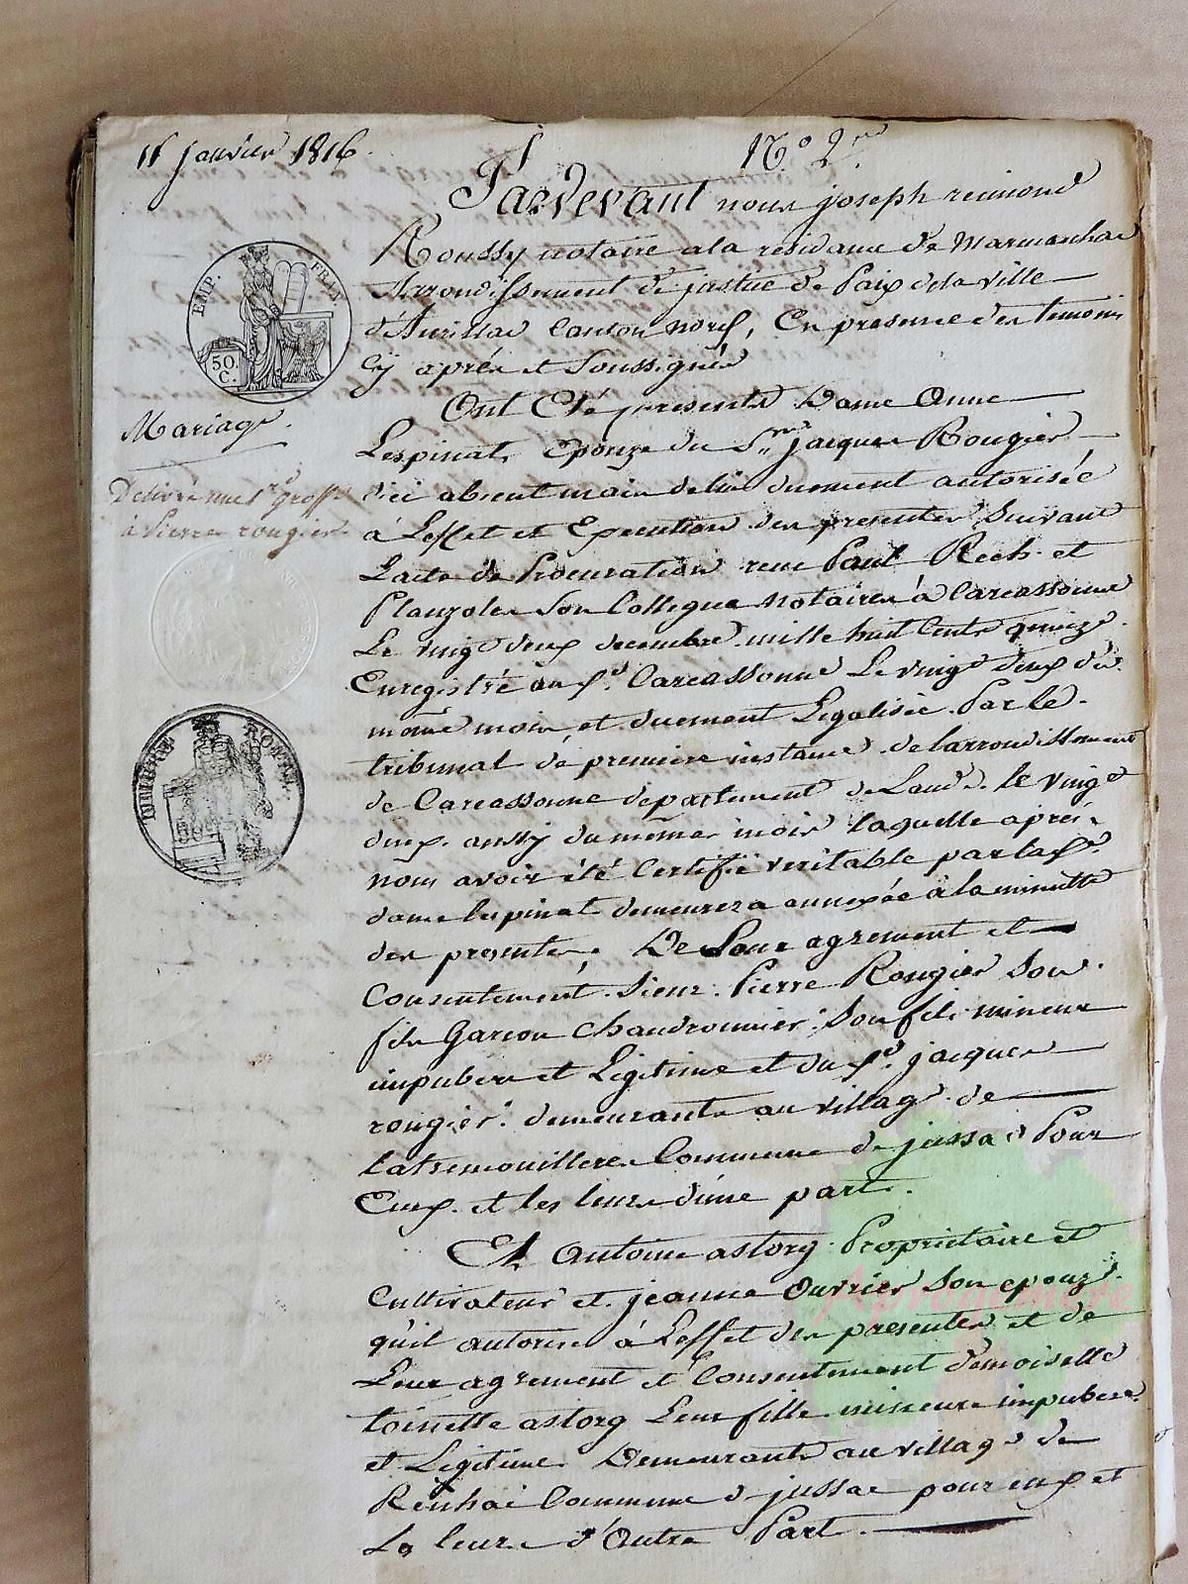 11 janvier 1816.
N.o 2.
Pardevant nous joseph reimond
Roussy notaire ala residance de Marmanhac
Arrondissement de justice de Paix dela ville
d'Aurillac Canton nord, En presence des temoins
cy après et Soussignés
EMP. FRAN
50. C.
Mariage.
Délivré une 1re grosse
à Pierre rougier
Ont Eté presents Dame Anne
Lespinat, Epouze du Sr. jacques Rougier
d'ici absent mais de lui duement autorisée
à Leffet et Execution des presentes Suivant
Lacte de Procuration recu Paul Rech et
Plauzoles Son Collegue Notaires à Carcassonne
Le vingt deux decembre mille huit Cents quinze.
Enregistré au d. Carcassonne Le vingt deux du
même mois, et duement Legalisée Par le
tribunal de premiere instance de larrondissement
de Carcassonne departement de Laude le vingt
deux aussy du meme mois laquelle après
nous avoir été Certifié veritable par lad.
dame lespinat demeurera annexée à la minutte
des presentes. De Son agrement et
Consentement Sieur Pierre Rougier Son
fils Garcon Chaudronnier. Son fils mineur
impubere et Legitime et du d. jacques
rougier. demeurants au village de
latremouilleres Commune de jussac Pour
Eux et les leurs d'une part.
TIMBRE ROYAL
Et Antoine astorg Proprietaire et
Cultivateur et jeanne Ouvrier Son epouze
quil autorise à Leffet des presentes et de
Leur agrement et Consentement demoiselle
toinette astorg Leur fille mineure impubere
et Legitime Demeurants au village de
Reilhac Commune d jussac pour eux et
Les leurs d'Autre Part.